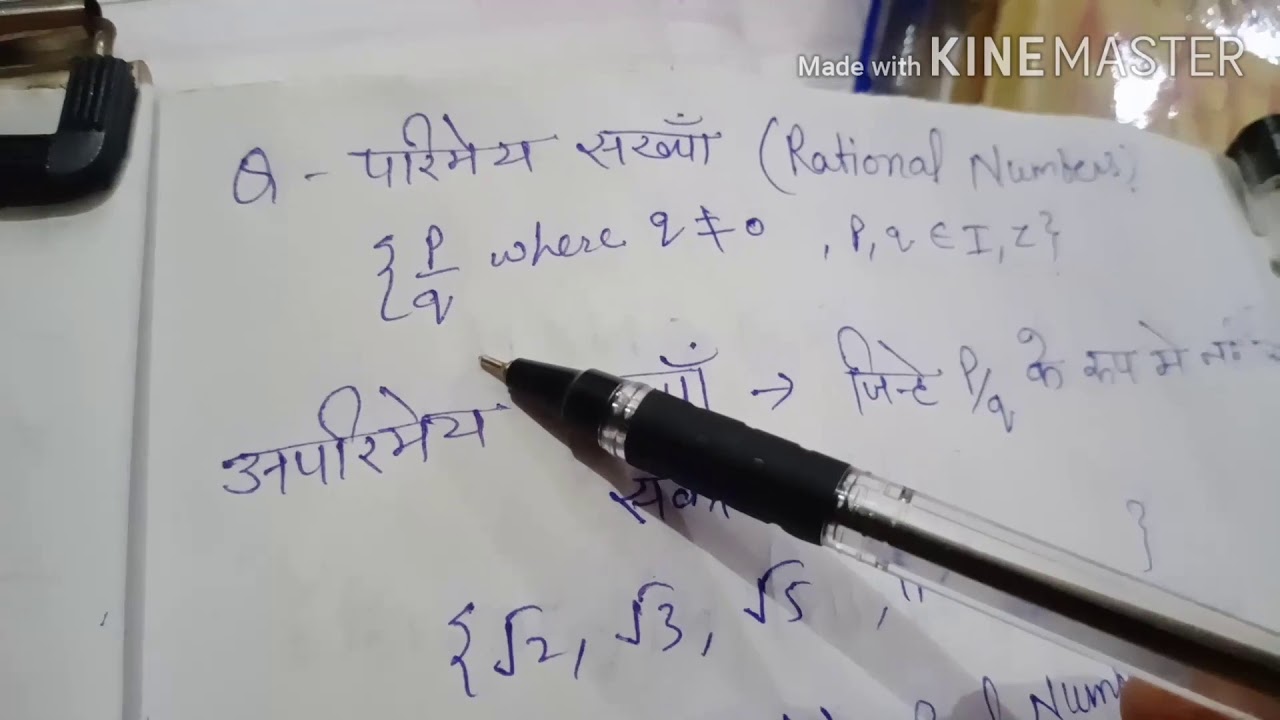 Made with KINEMASTER
Q - परिमेय सख्याँ (Rational Numbers)
{p/q where q ≠ 0 , P, q ∈ I, Z}
अपरिमेय → जिन्हे P/q के रूप मे
{√2, √3, √5 , }